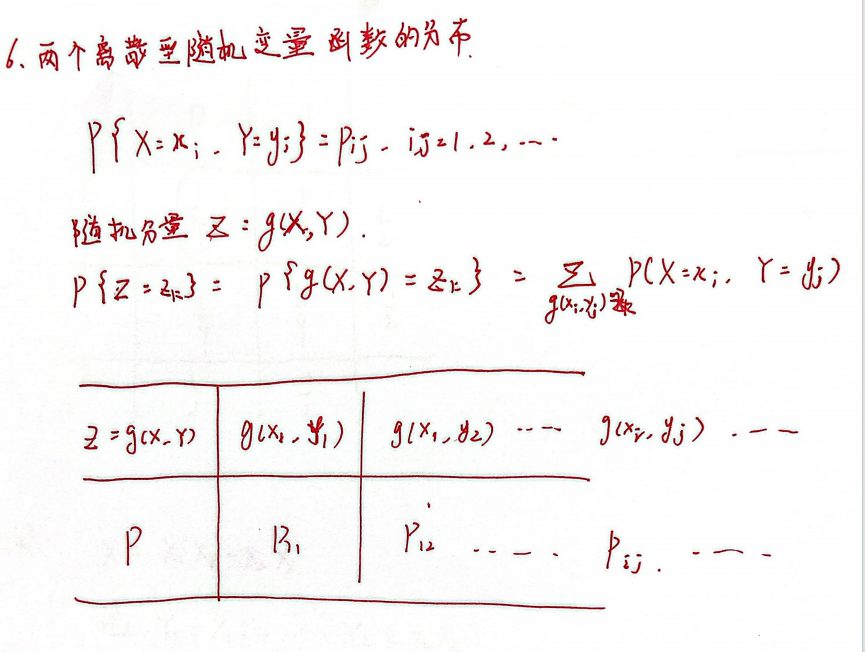 6、两个离散型随机变量函数的分布.
P{X=xᵢ, Y=yⱼ}=pᵢⱼ, i,j=1,2,……
随机分量 Z=g(X,Y).
P{Z=zₖ}= P{g(X,Y)=zₖ} = ∑ P(X=xᵢ, Y=yⱼ)
g(xᵢ,yⱼ)=zₖ
Z=g(X,Y) g(x₁,y₁) g(x₁,y₂) …… g(xᵢ,yⱼ) ……
P P₁₁ P₁₂ …… Pᵢⱼ ……